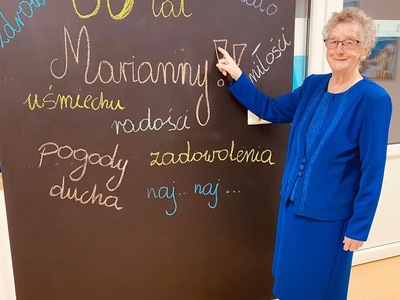 lat
Marianny!
miłości
uśmiechu
radości
pogody
ducha
zadowolenia
naj... naj...